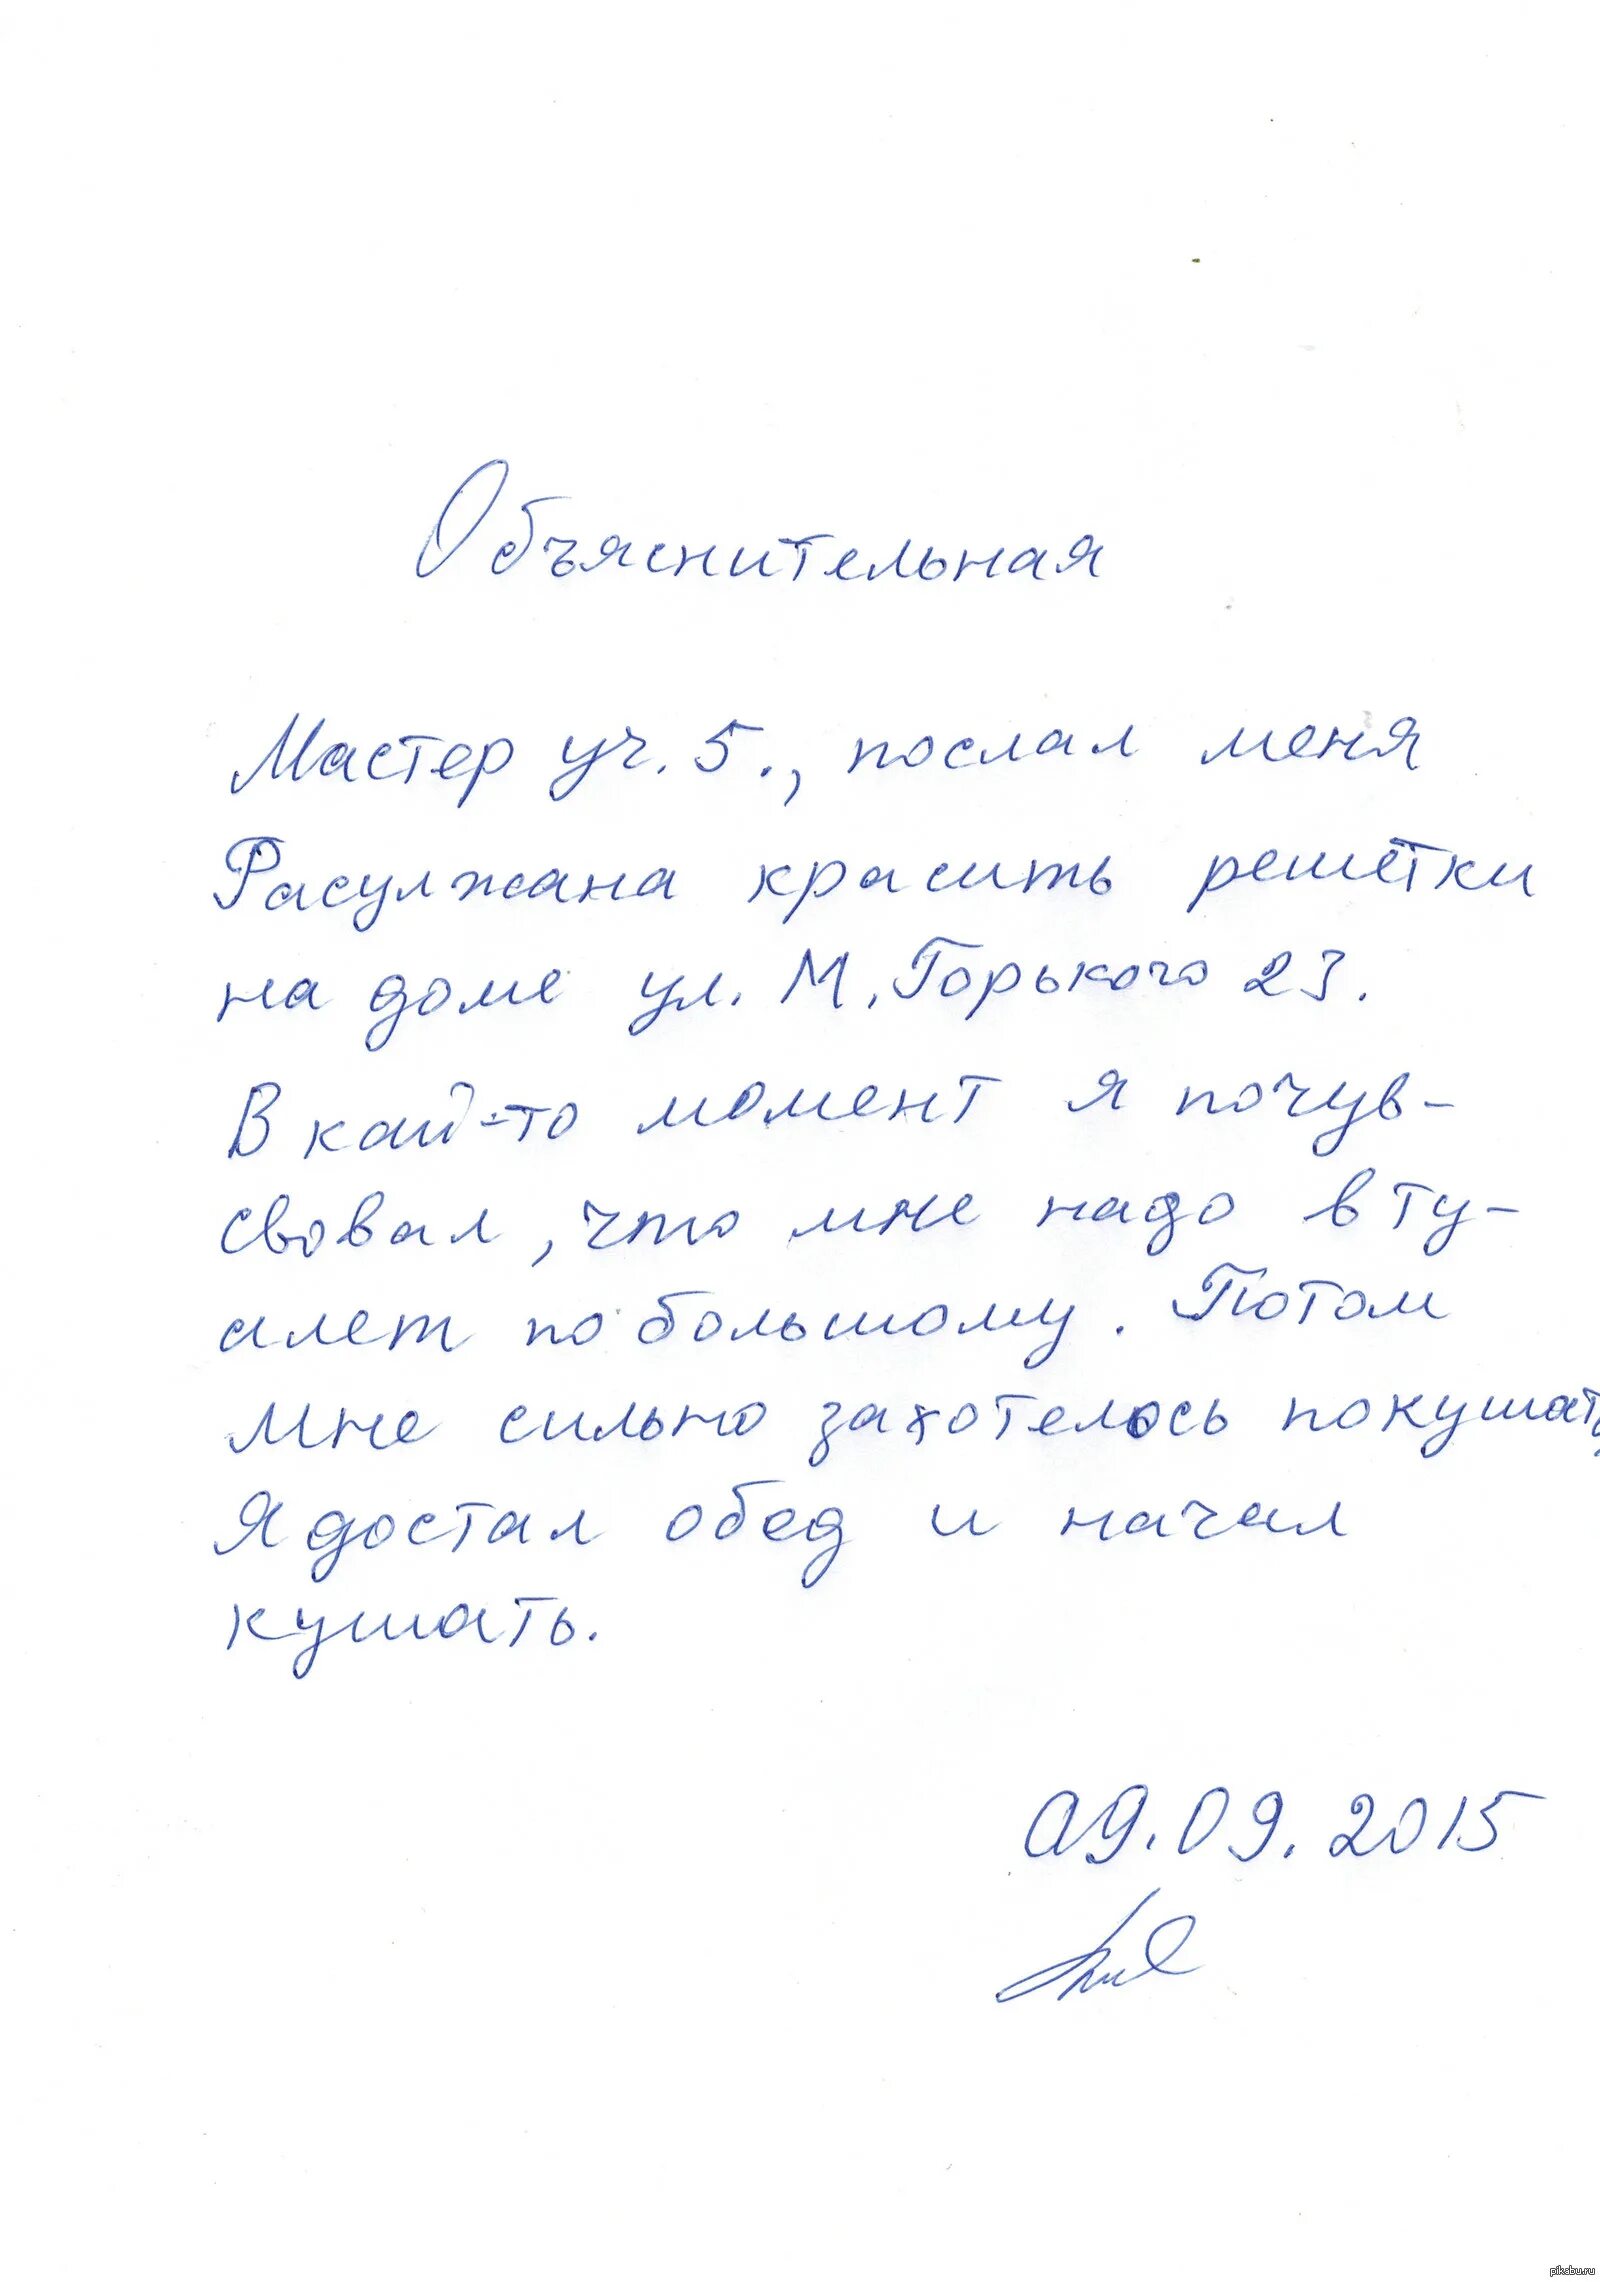 Объяснительная
Мастер уч. 5., послал меня
Расулжана красить решётки
на доме ул. М. Горького 23.
В кай-то момент я почув-
свовал, что мне надо в ту-
алет по большому. Потом
мне сильно захотелось покушать
Я достал обед и начал
кушать.
09.09.2015
pikabu.ru